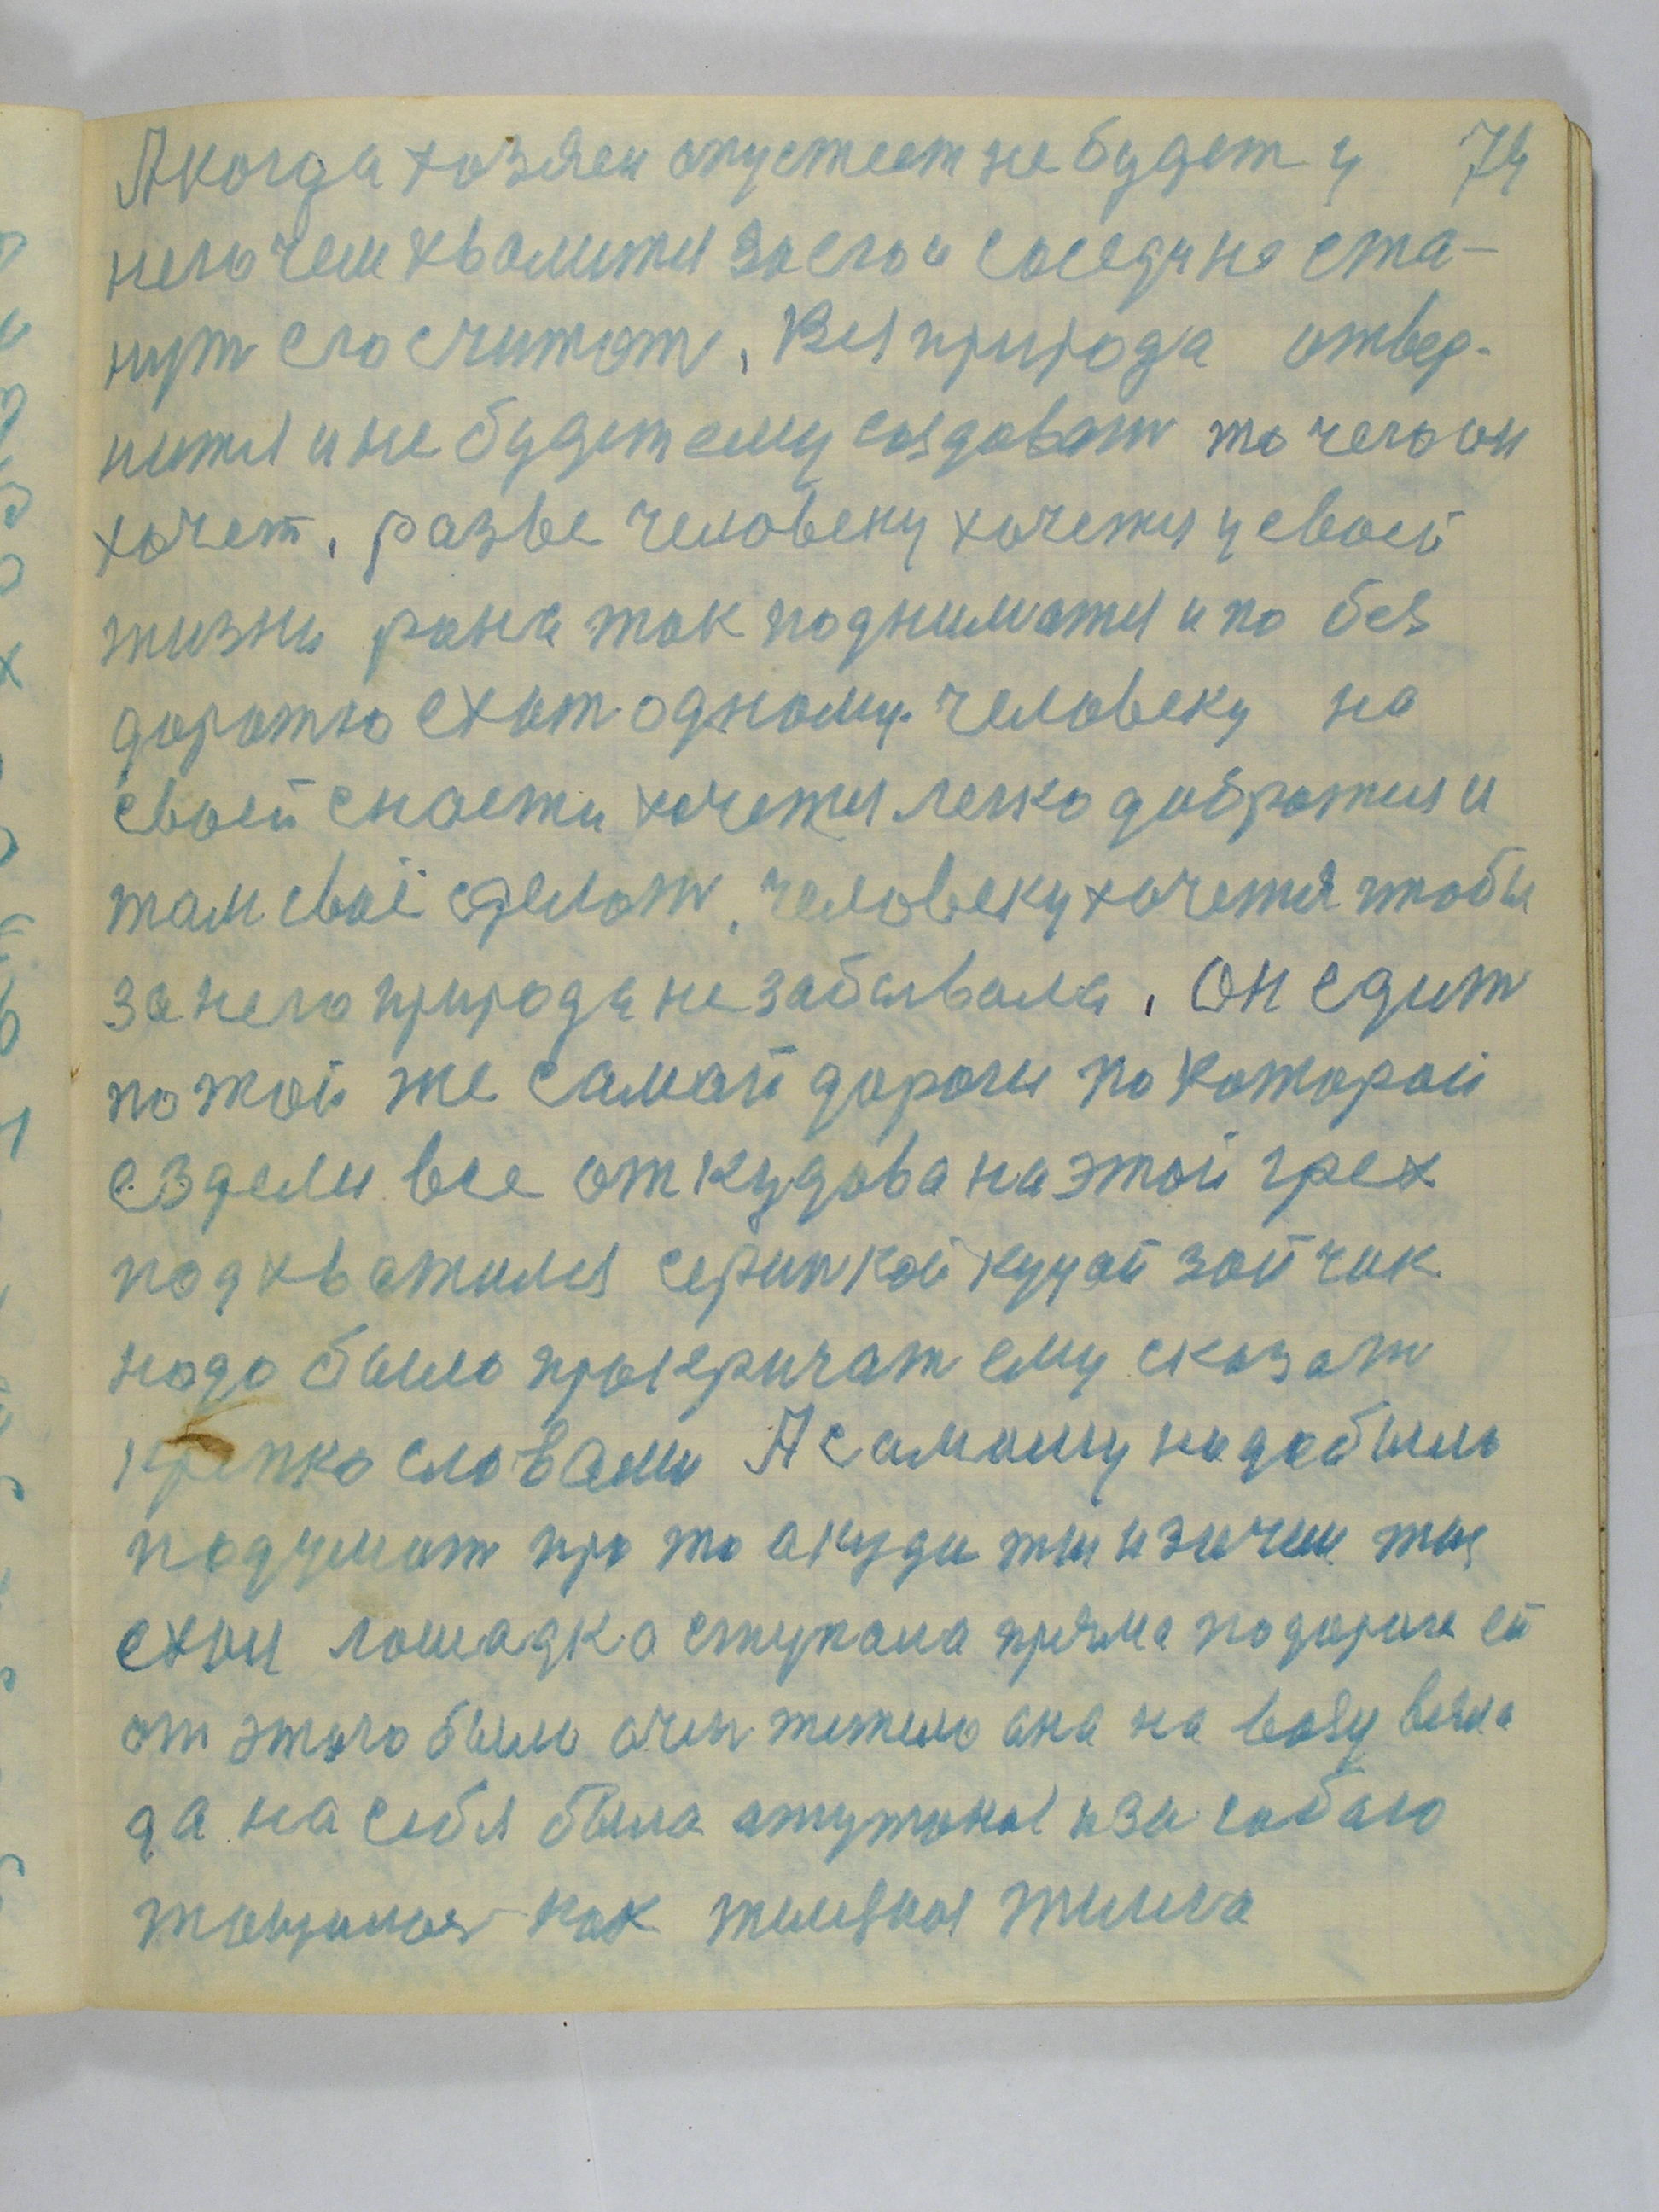 А когда хозяен опустеет не будет у 74
него чем хвалитя за ево и соседи не ста-
нут ево считат, Вся природа отвер-
нитя и не будет ему создоват то чево он
хочет, разве человеку хочетя у своей
жизни рана так подниматя и по без
доротю ехат одному человеку на
своей снасти хочетя легко добратися и
там своё сделат, человеку хочетя чтобы
за него природа не забывала, Он едит
по той же самой дороги по которой
ездели все откудова на этой грех
подхватился серинкой куцой зойчик
надо было прыкричат ему сказат
крепко словами А самому надо было
подумат про то акуди ты и зачем ты
ехои лошадка ступала пряма по дороге ей
от этого было очен тежело ана на возу везла
да на себя была
тащилась как